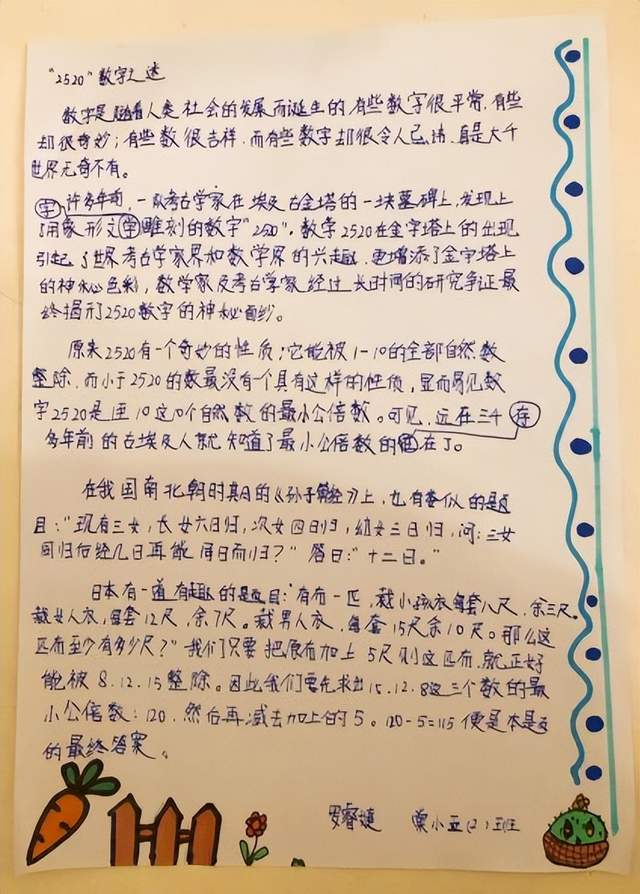 “2520”数字之迷
数字是随着人类社会的发展而诞生的,有些数字很平常,有些
却很奇妙;有些数很吉祥,而有些数字却很令人忌讳,真是大千
世界无奇不有。
许多年前,一队考古学家在埃及古金塔的一块墓碑上,发现上
了用象形文字雕刻的数字“2520”。数字2520在金字塔上的出现
引起了世界考古学家界和数学界的兴趣,更增添了金字塔上
的神秘色彩,数学家及考古学家经过长时间的研究争证最
终揭示了2520数字的神秘面纱。
原来2520有一个奇妙的性质;它能被1-10的全部自然数
整除,而小于2520的数最没有一个具有这样的性质,显而易见数
字2520是1至10这10个自然数的最小公倍数。可见,远在三千
多年前的古埃及人就知道了最小公倍数的存在了。
在我国南北朝时其月的《孙子算经》上,也有类似的题
目:“现有三女,长女六日归,次女四日归,幼女三日归,问:三女
回归后经几日再能同日而归?”答曰:“十二日。”
日本有一道有趣的题目:“有布一匹,裁小孩衣每套八尺,余三尺。
裁女人衣,每套12尺,余7尺。裁男人衣,每套15尺余10尺。那么这
匹布至少有多少尺?”我们只要把原布加上5尺则这匹布就正好
能被8.12.15整除。因此我们要先求出15.12.8这三个数的最
小公倍数:120.然后再减去加上的5。120-5=115便是本题
的最终答案。
罗睿 小五(2)班